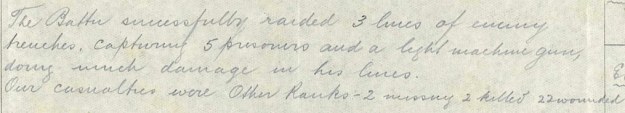 The Battn successfully raided 3 lines of enemy
trenches, capturing 5 prisoners and a light machine gun,
doing much damage in his lines.
Our casualties were Other Ranks - 2 missing 2 killed 22 wounded